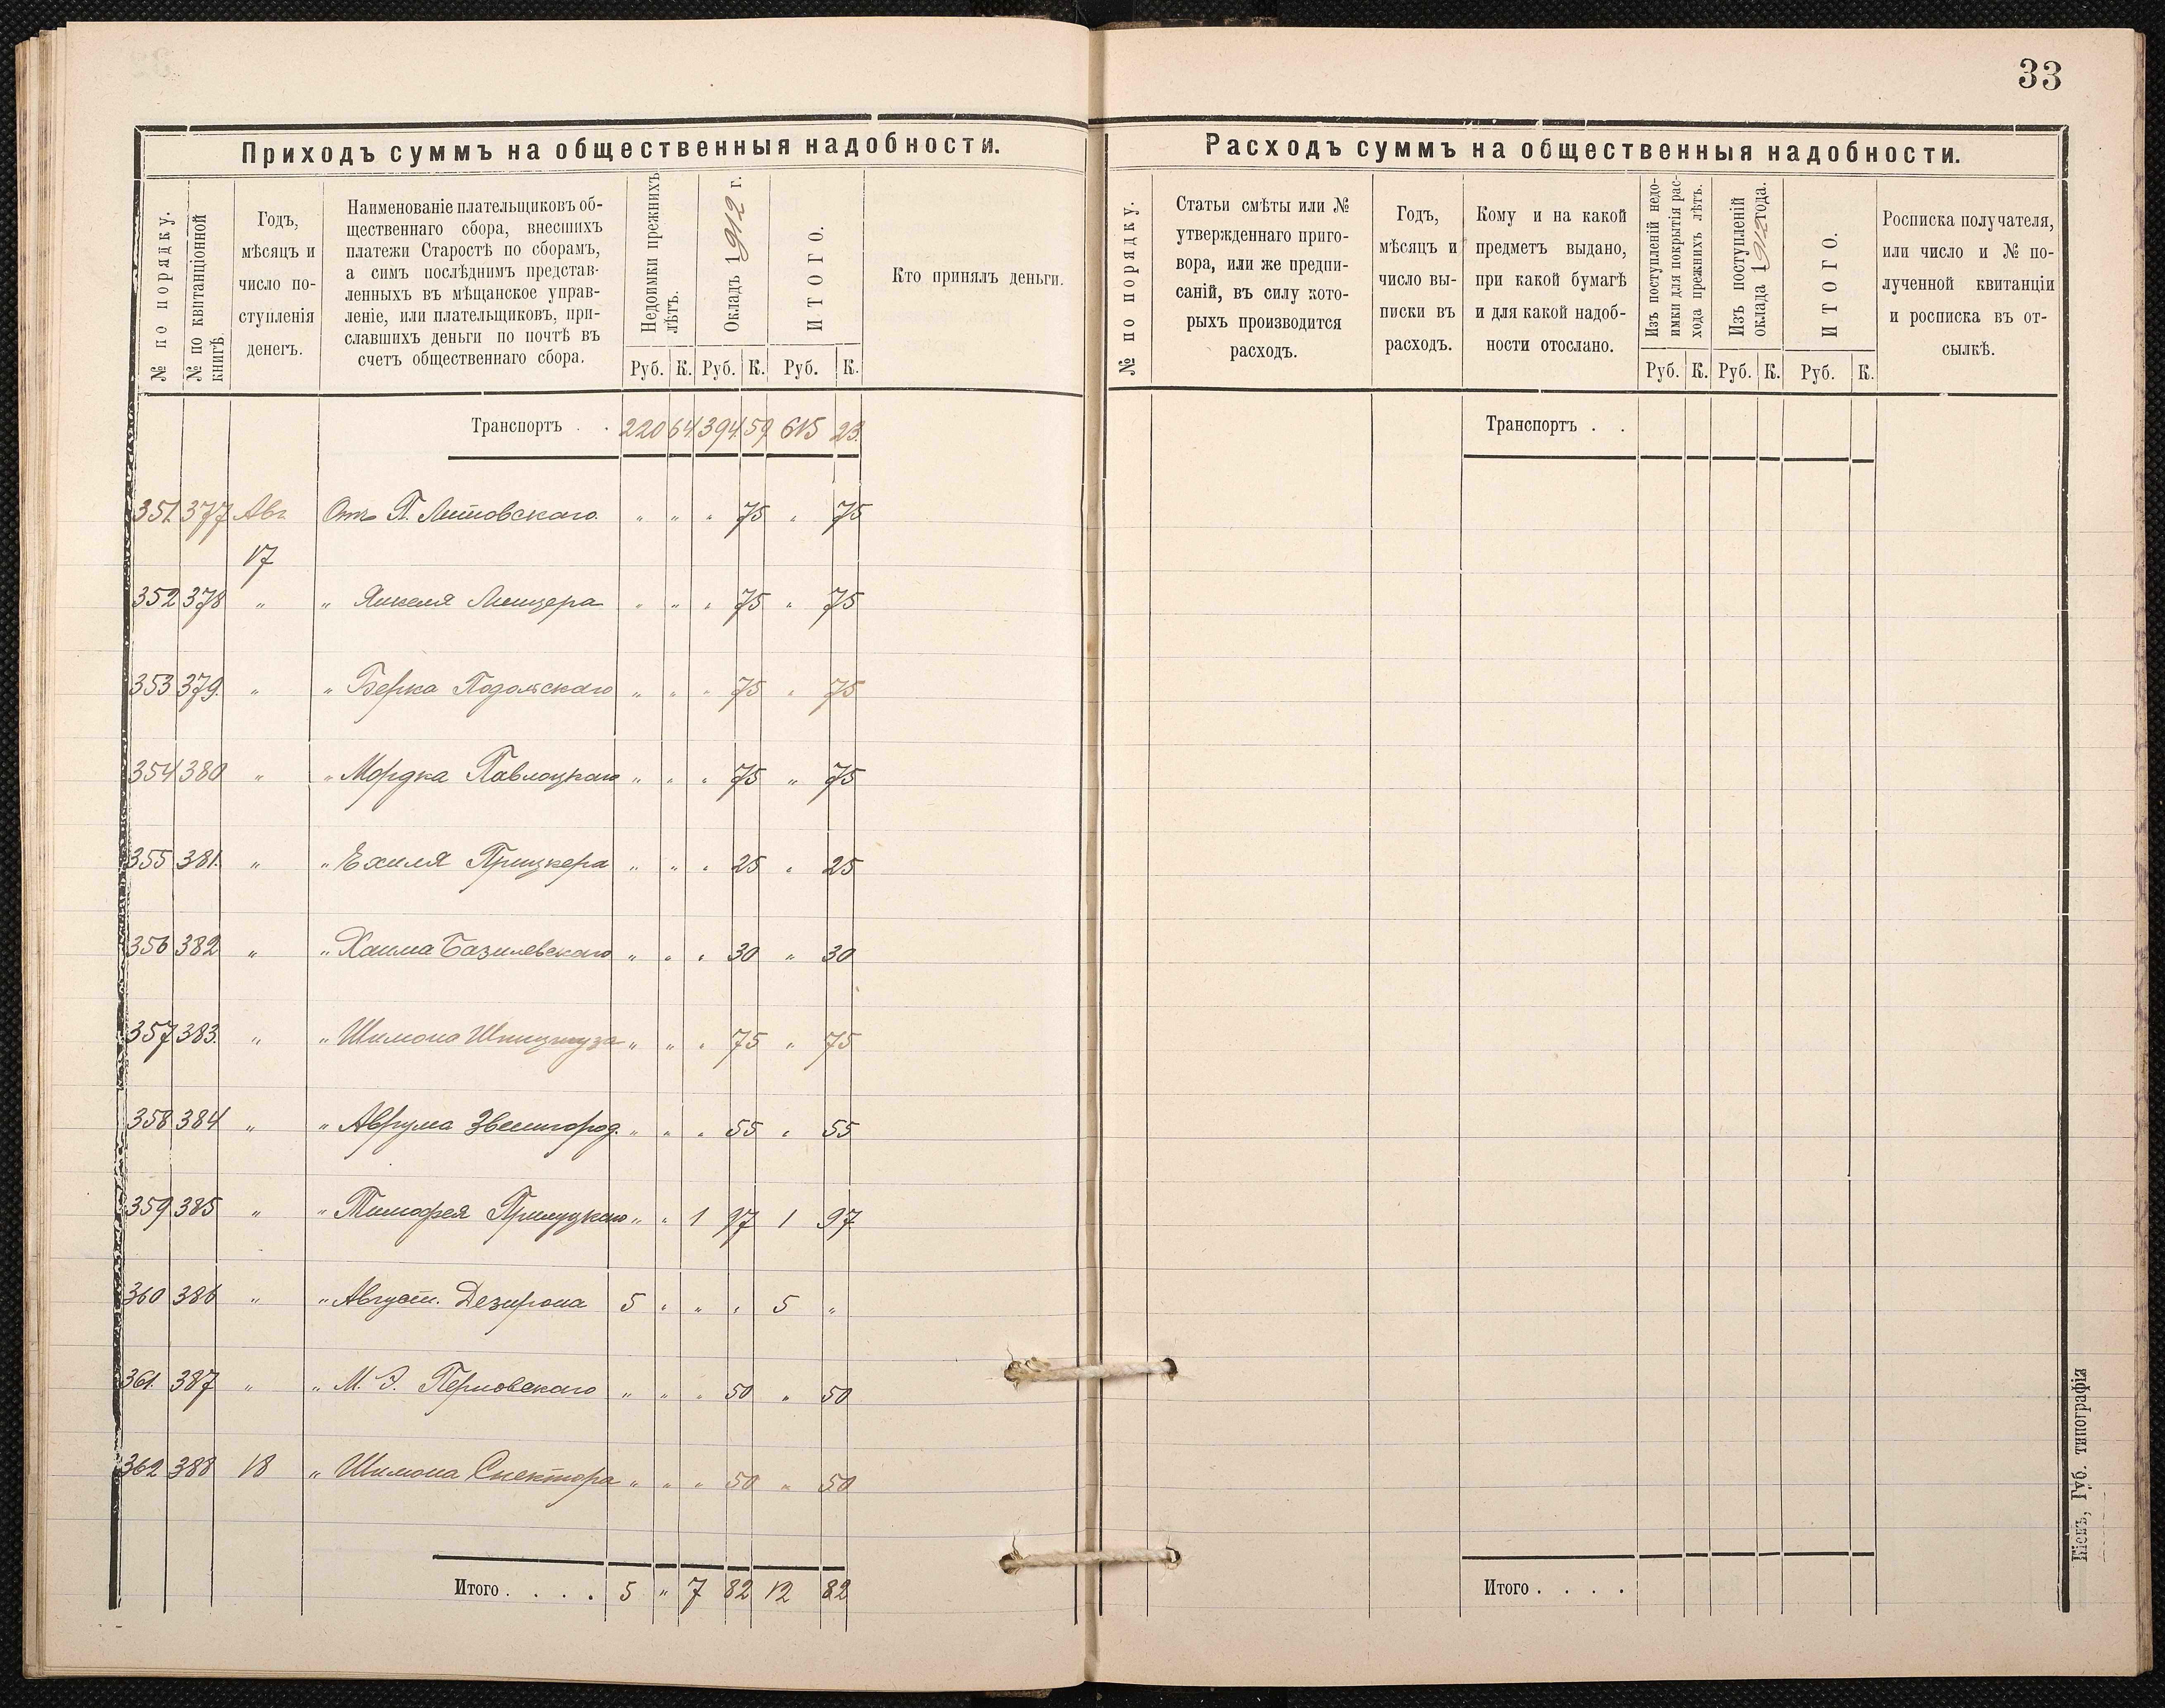 33
Приходъ суммъ на общественныя надобности.
№ по порядку.
№ по квитанціонной книгѣ.
Годъ,
мѣсяцъ и
число по-
ступленія
денегъ.
Наименованіе плательщиковъ об-
щественнаго сбора, внесшихъ
платежи Старостѣ по сборамъ,
а симъ послѣднимъ представ-
ленныхъ въ мѣщанское управ-
леніе, или плательщиковъ, при-
славшихъ деньги по почтѣ въ
счетъ общественнаго сбора.
Недоимки прежнихъ
лѣтъ.
Окладъ 1912 г.
ИТОГО.
Кто принялъ деньги.
Руб. К. Руб. К. Руб. К.
Транспортъ . . 220 64 394 59 615 23
351 377 Авг. Отъ П. Литовскаго " " " 75 " 75
17
352 378 " " Янкеля " " " 75 " 75
353 379 " " Берка Подольскаго " " " 75 " 75
354 380 " " Мордка Павлоцкаго " " " 75 " 75
355 381 " " Ехиля Прицкера " " " 25 " 25
356 382 " " Хаима Базилевскаго " " " 30 " 30
357 383 " " Шимона " " " 75 " 75
358 384 " " Аврума Звенигород. " " " 55 " 55
359 385 " " Тимофея Прилуцкаго " " 1 97 1 97
360 386 " " Август. Дезирона 5 " " " 5 "
361 387 " " М. Э. Перловскаго " " " 50 " 50
362 388 18 " Шимона Спектора " " " 50 " 50
Итого . . . . 5 " 7 82 12 82
Расходъ суммъ на общественныя надобности.
№ по порядку.
Статьи смѣты или №
утвержденнаго приго-
вора, или же предпи-
саній, въ силу кото-
рыхъ производится
расходъ.
Годъ,
мѣсяцъ и
число вы-
писки въ
расходъ.
Кому и на какой
предметъ выдано,
при какой бумагѣ
и для какой надоб-
ности отослано.
Изъ поступленій недо-
имки для покрытія рас-
хода прежнихъ лѣтъ.
Изъ поступленій
оклада 1912 года.
ИТОГО.
Росписка получателя,
или число и № по-
лученной квитанціи
и росписка въ от-
сылкѣ.
Руб. К. Руб. К. Руб. К.
Транспортъ . .
Итого . . . .
Губ. типографія